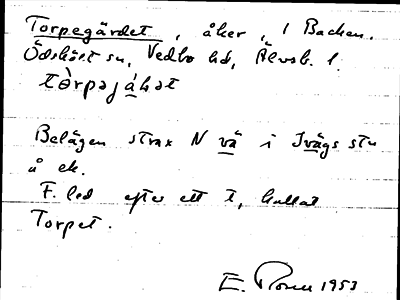 Torpegärdet, åker, 1 Backen.
Ödskölt sn, Vedbo hd, Älvsb. l.
Belägen strax N vä i Ivägs stn
å ek.
F. led efter ett t, kallat
Torpet.
E. 1953